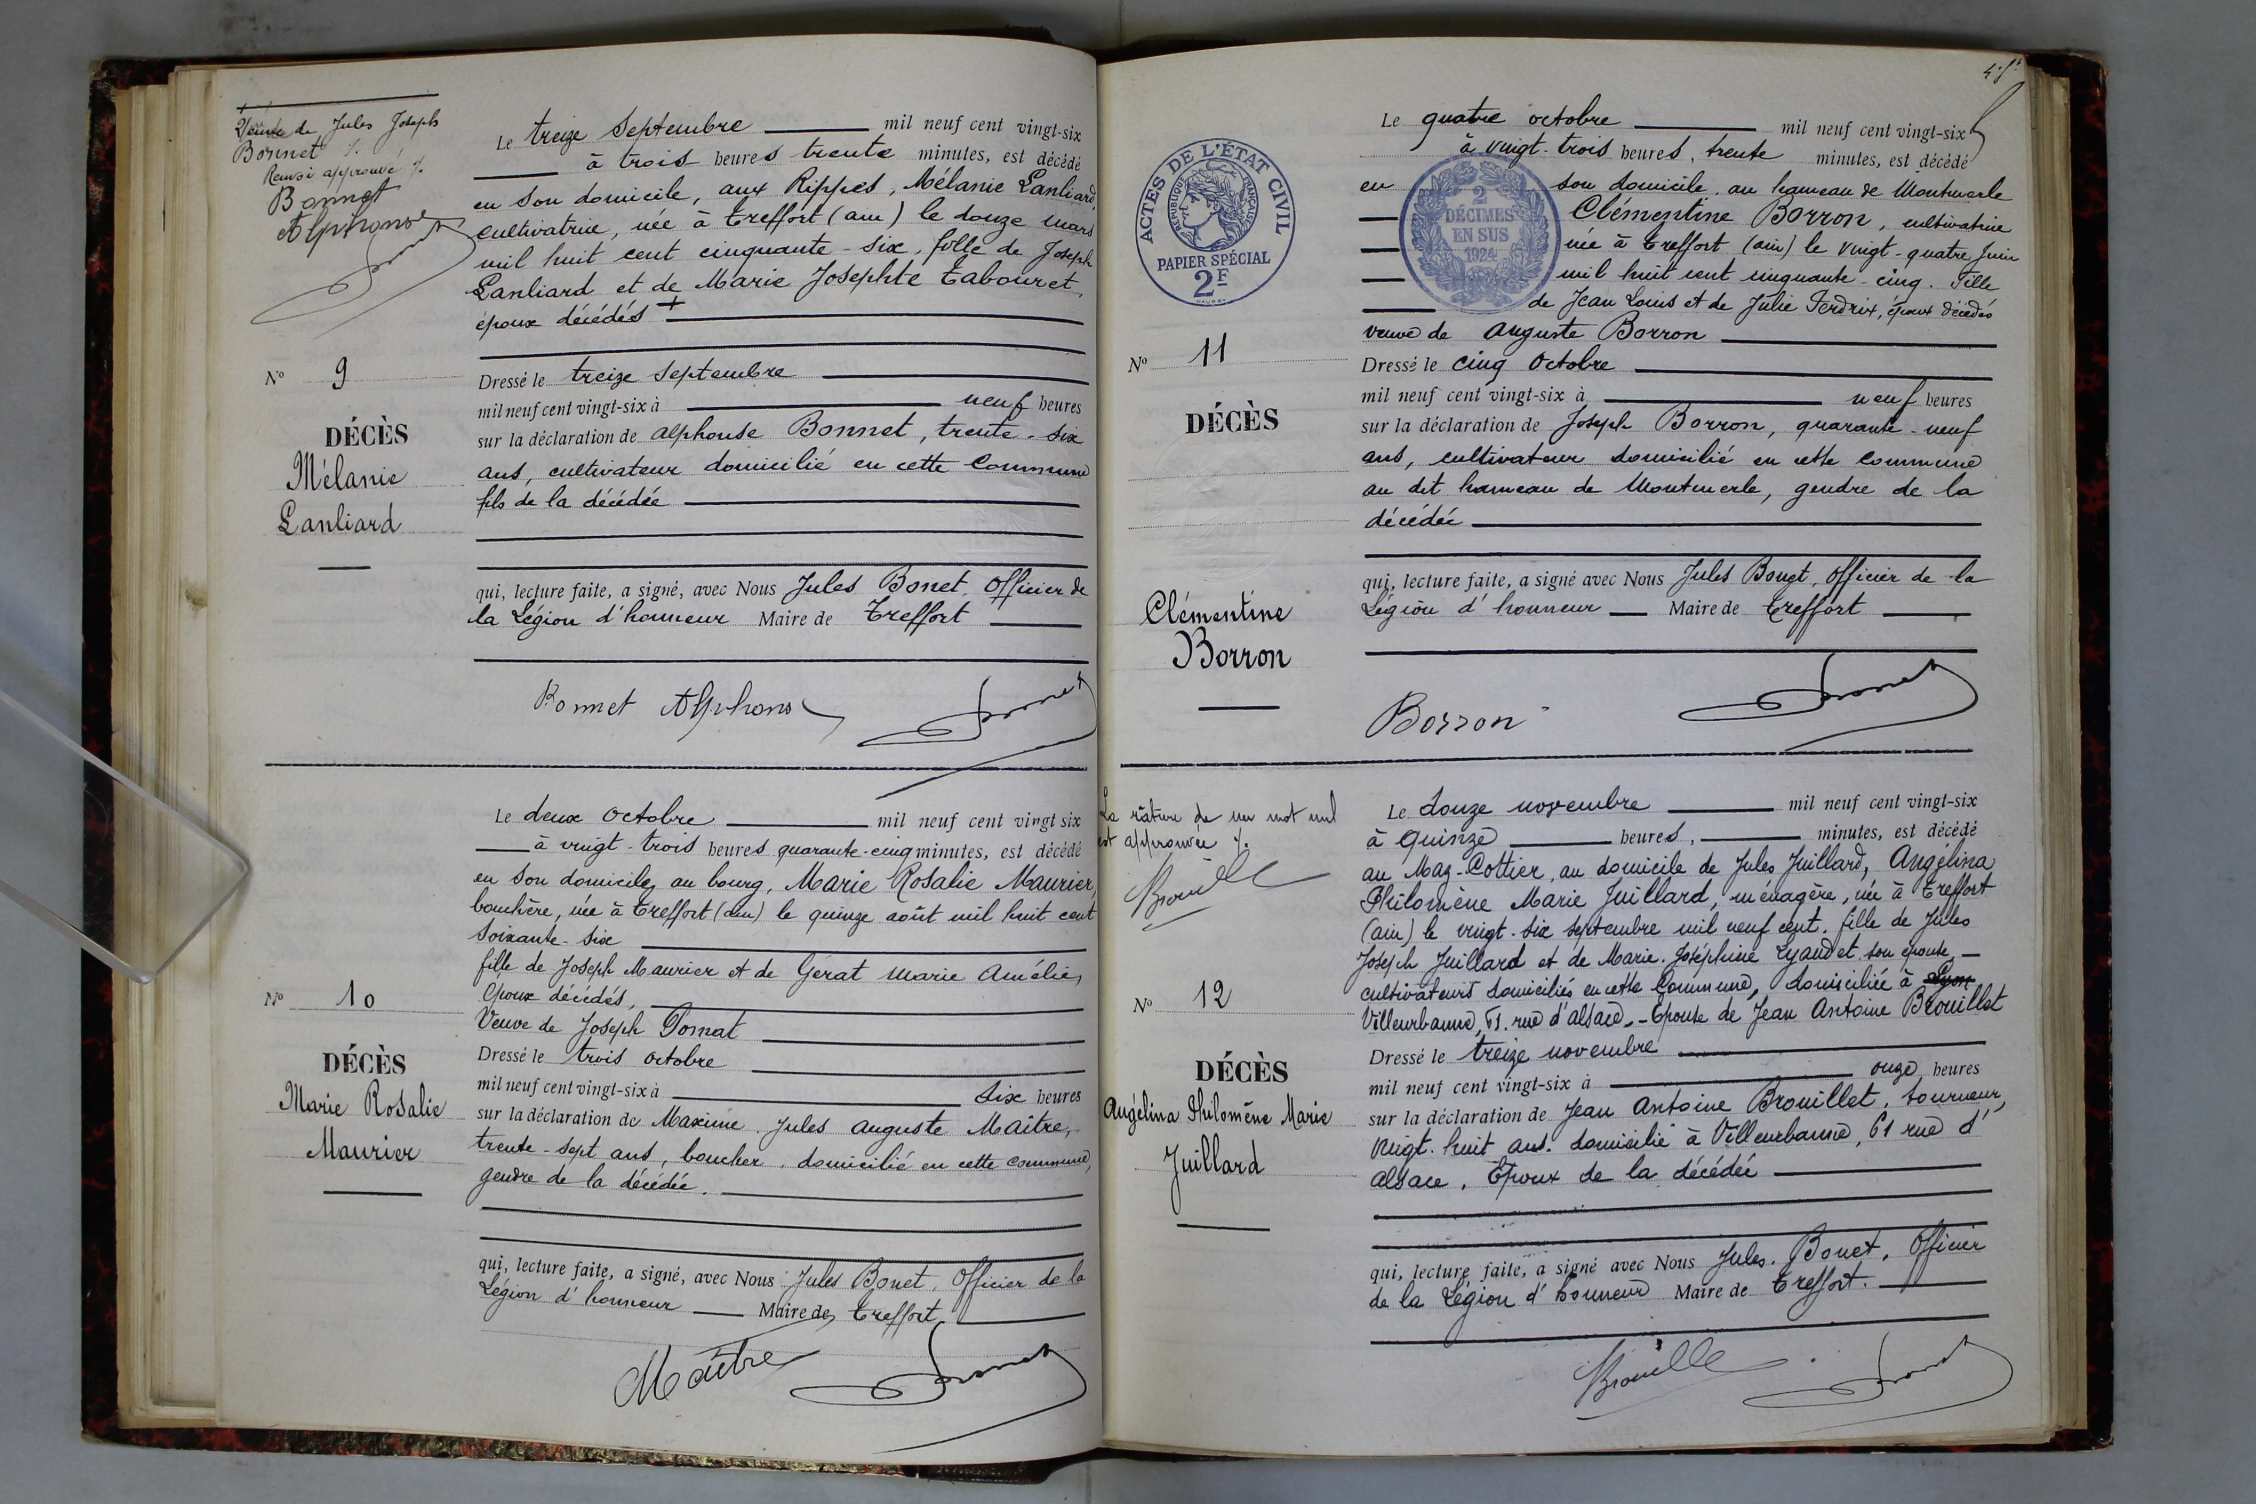 Veuve de Jules Joseph
Bonnet ./.
Renvoi approuvé ./.
Bonnet
Alphonse
Le treize Septembre mil neuf cent vingt-six
à trois heures trente minutes, est décédé
en son domicile, aux Rippes, Mélanie Lanliard,
cultivatrice, née à Treffort (ain) le douze mars
mil huit cent cinquante-six, fille de Joseph
Lanliard et de Marie Josephte Tabouret,
époux décédés +
N° 9
DÉCÈS
Mélanie
Lanliard
Dressé le treize Septembre
mil neuf cent vingt-six à neuf heures
sur la déclaration de alphonse Bonnet, trente-six
ans, cultivateur domicilié en cette Commune
fils de la décédée
qui, lecture faite, a signé, avec Nous Jules Bonet, Officier de
la Légion d'honneur Maire de Treffort
Bonnet Alphons
Le deux Octobre mil neuf cent vingt six
à vingt-trois heures quarante-cinq minutes, est décédé
en son domicile, au bourg, Marie Rosalie Maurier,
bouchère, née à Treffort (ain) le quinze août mil huit cent
soixante-six
fille de Joseph Maurier et de Gérat Marie Amélie,
époux décédés,
Veuve de Joseph Tomat
N° 10
DÉCÈS
Marie Rosalie
Maurier
Dressé le trois octobre
mil neuf cent vingt-six à six heures
sur la déclaration de Maxime Jules Auguste Maître,
trente-sept ans, boucher, domicilié en cette commune,
gendre de la décédée.
qui, lecture faite, a signé, avec Nous Jules Bonet, Officier de la
Légion d'honneur Maire de Treffort
Maître
ACTES DE L'ÉTAT CIVIL
RÉPUBLIQUE FRANÇAISE
PAPIER SPÉCIAL
2F
2
DÉCIMES
EN SUS
1924
Le quatre octobre mil neuf cent vingt-six
à vingt-trois heures, trente minutes, est décédé
en son domicile, au hameau de Montmerle
Clémentine Borron, cultivatrice
née à Treffort (ain) le vingt-quatre Juin
mil huit cent cinquante-cinq. Fille
de Jean Louis et de Julie Ferdrix, époux décédés
veuve de Auguste Borron
N° 11
DÉCÈS
Clémentine
Borron
Dressé le cinq Octobre
mil neuf cent vingt-six à neuf heures
sur la déclaration de Joseph Borron, quarante-neuf
ans, cultivateur domicilié en cette commune
au dit hameau de Montmerle, gendre de la
décédée
qui, lecture faite, a signé avec Nous Jules Bonet, Officier de la
Légion d'honneur Maire de Treffort
Borron
La râture de un mot nul
est approuvée ./.
Brouille
Le douze novembre mil neuf cent vingt-six
à quinze heures, minutes, est décédé
au Maz-Cottier, au domicile de Jules Juillard, Angélina
Philomène Marie Juillard, ménagère, née à Treffort
(ain) le vingt-six septembre mil neuf cent, fille de Jules
Joseph Juillard et de Marie-Joséphine Lyaudet, son épouse,
cultivateurs domiciliés en cette Commune, domiciliée à Lyon
Villeurbanne, 61, rue d'alsace, - Epouse de Jean Antoine Brouillet
N° 12
DÉCÈS
Angélina Philomène Marie
Juillard
Dressé le treize novembre
mil neuf cent vingt-six à onze heures
sur la déclaration de Jean Antoine Brouillet, tourneur,
vingt-huit ans, domicilié à Villeurbanne, 61 rue d'
alsace, Epoux de la décédée
qui, lecture faite, a signé avec Nous Jules Bonet, Officier
de la Légion d'honneur Maire de Treffort.
Brouille